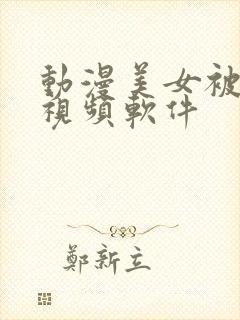 動漫美女被
視頻軟件
鄭新立